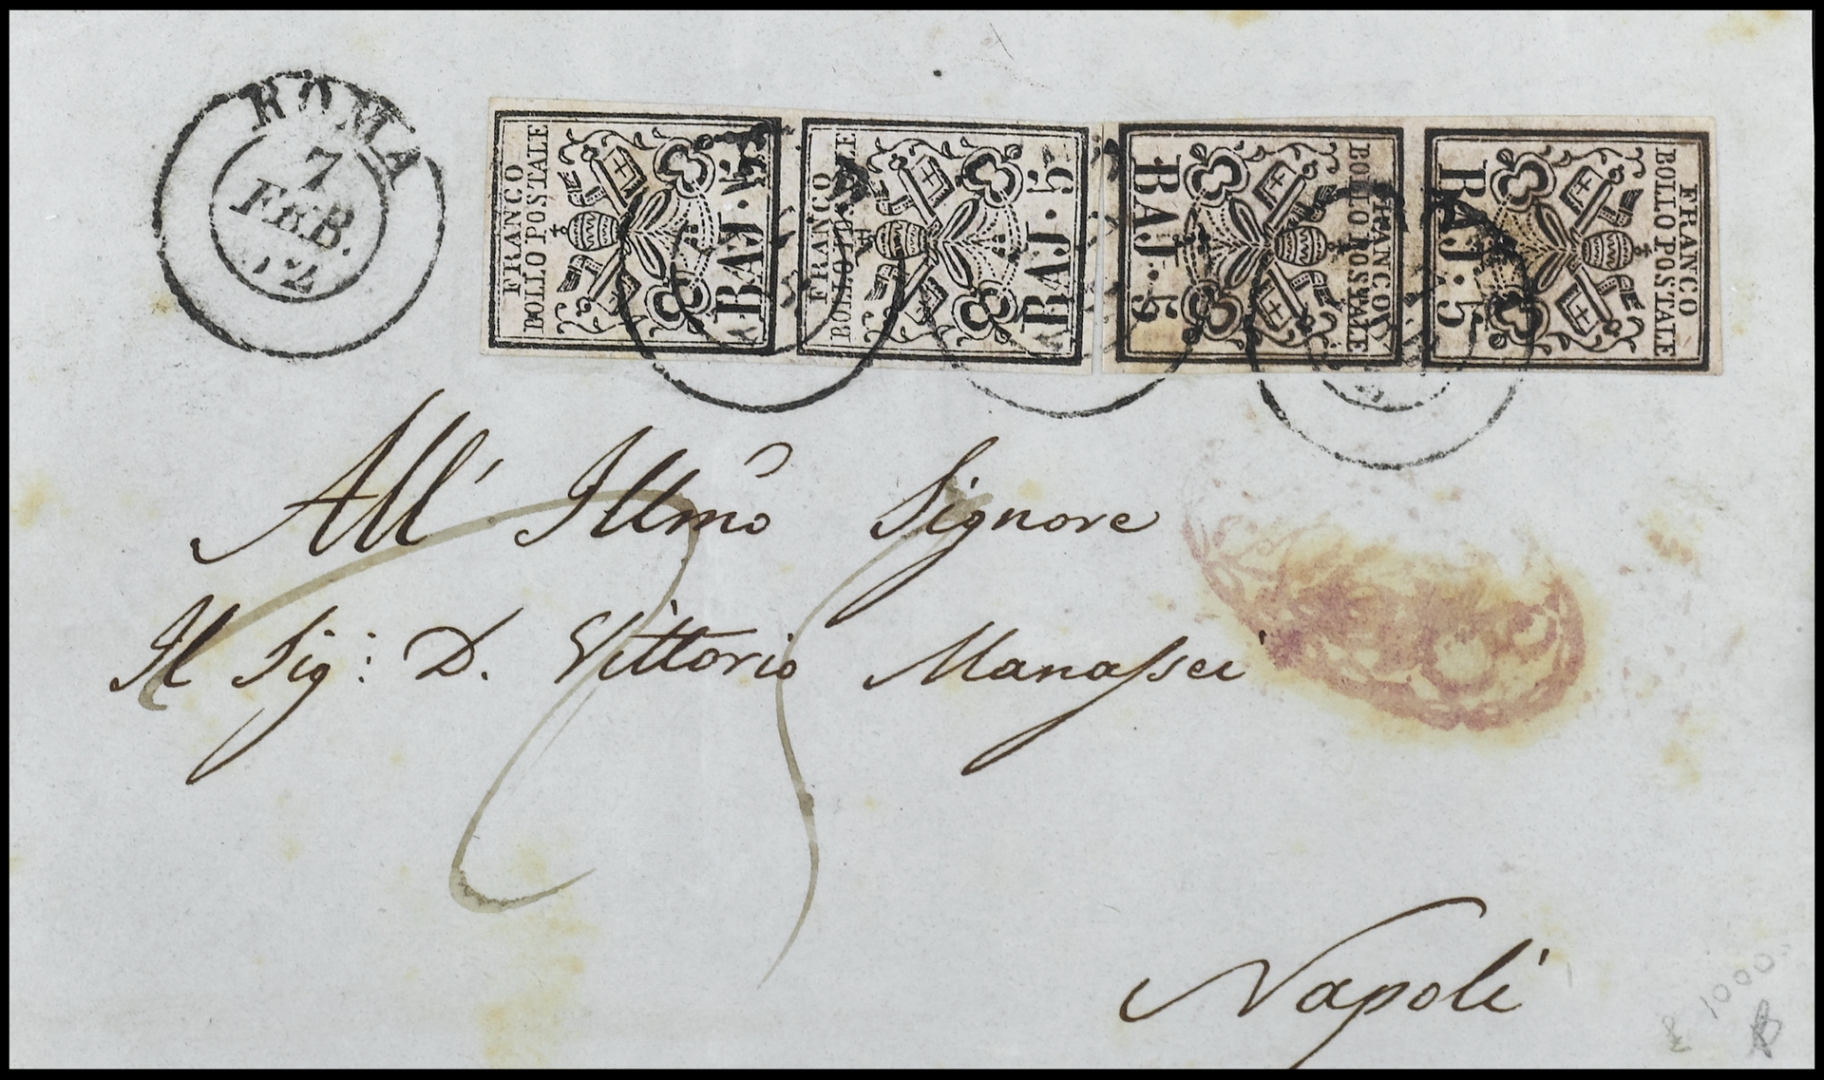 ROMA
7
FEB.
FRANCO
BOLLO POSTALE
BAJ. 5
FRANCO
BOLLO POSTALE
BAJ. 5
FRANCO
BOLLO POSTALE
BAJ. 5
FRANCO
BOLLO POSTALE
BAJ. 5
All' Illmo Signore
Il Sig: D. Vittorio Manassei
Napoli
1000